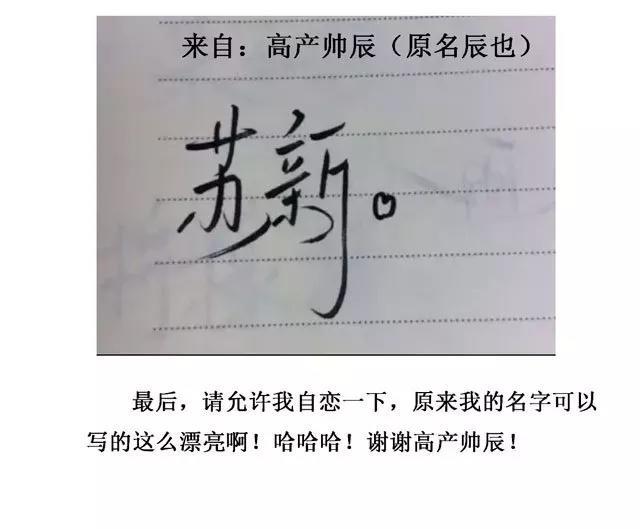 来自：高产帅辰（原名辰也）
苏新。
最后，请允许我自恋一下，原来我的名字可以
写的这么漂亮啊！哈哈哈！谢谢高产帅辰！